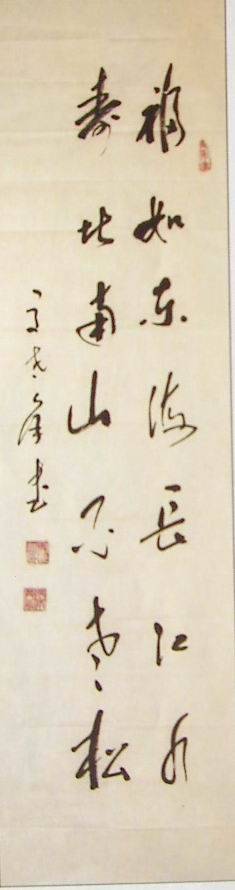 福如东海长江水
寿比南山不老松
书